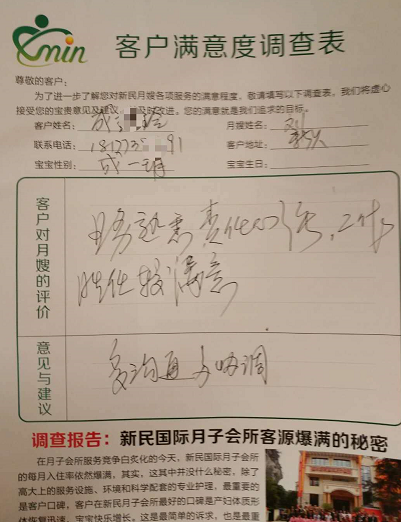 min
客户满意度调查表
尊敬的客户：
为了进一步了解您对新民月嫂各项服务的满意程度，敬请填写以下调查表，我们将虚心
接受您的宝贵意见及建议，及时改进。您的满意就是我们追求的目标。
客户姓名： 成
月嫂姓名：
联系电话： 181 91
客户地址：
宝宝性别： 成一玥
宝宝生日：
客户对月嫂的评价
业务熟悉 责任心强，工作
胜任 较满意
意见与建议
多沟通 多协调
调查报告：新民国际月子会所客源爆满的秘密
在月子会所服务竞争白炙化的今天，新民国际月子会所
的每月入住率依然爆满，其实，这其中并没什么秘密，除了
高大上的服务设施、环境和科学配套的专业护理，最重要的
是客户口碑，客户在新民国际月子会所最好的口碑是产妇体质形
体恢复迅速，宝宝快乐增长。这是最简单的诉求，也是最重